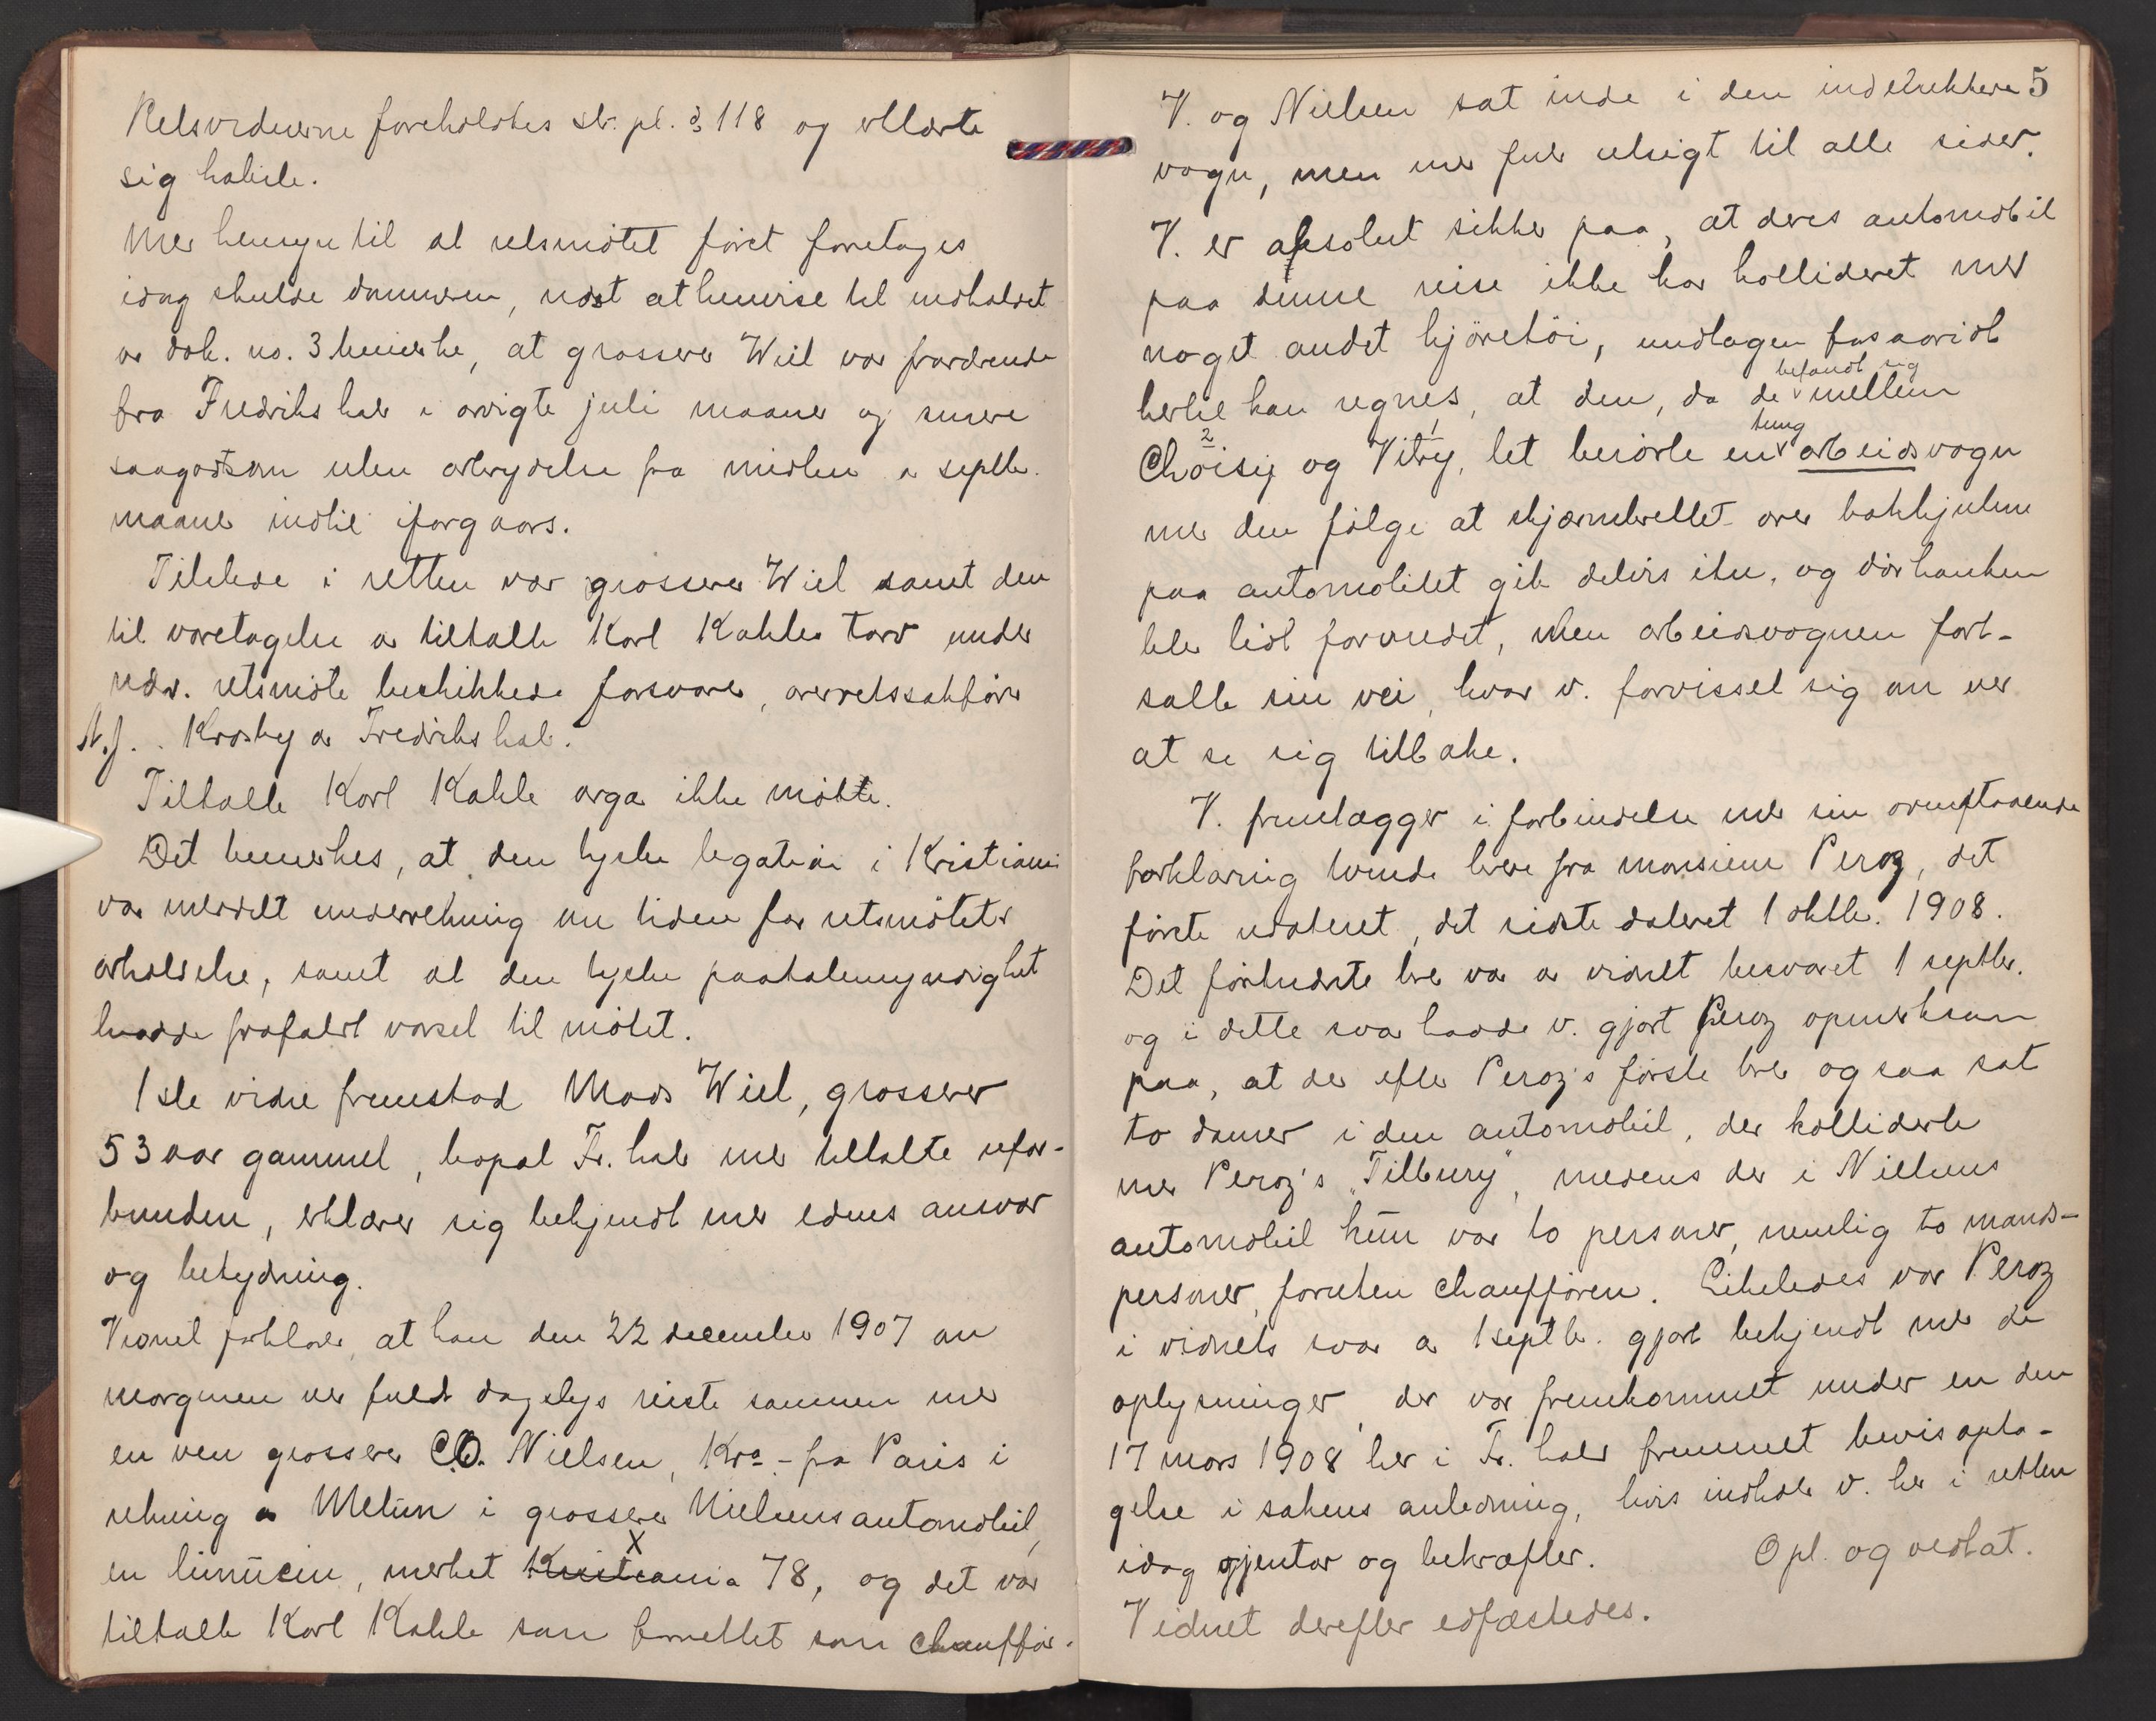 Retsvidnerne foreholdtes str. pl. § 118 og erklærte
sig habile.
Med hensyn til at retsmötet först foretages
idag skulde dommeren, næst at henvise til indholdet
av dok. no. 3 bemerke, at grosserer Wiel var fraværende
fra Fredrikshald i avvigte juli maaned og senere
saagodtsom uten avbrydelse fra midten av septbr.
maaned indtil iforgaars.
Tilstede i retten var grosserer Wiel samt den
til varetagelse av tiltalte Karl Kahles tarv under
nærv. retsmöte beskikkede forsvarer, overretssakförer
N. J. Krosby av Fredrikshald.
Tiltalte Karl Kahle avga ikke mötte.
Det bemerkes, at den tyske legation i Kristiania
var meddelt underretning om tiden for retsmötets
avholdelse, samt at den tyske paatalemyndighet
hadde frafaldt varsel til mötet.
1ste vidne fremstod Mads Wiel, grosserer
53 aar gammel, bopæl Fr.hald med tiltalte ufor-
bunden, erklærer sig bekjendt med edens ansvar
og betydning.
Vidnet forklarer, at han den 22 december 1907 om
morgenen ved fuldt dagslys reiste sammen med
en ven grosserer C.O. Nielsen, Kra. - fra Paris i
retning av Melun i grosserer Nielsens automobil,
X
en limusin, merket Kristiania 78, og det var
tiltalte Karl Kahle som formettet som chauffør.
5
V. og Nielsen sat inde i den indelukkede
vogn, men med fuld utsigt til alle sider.
V. er absolut sikker paa, at deres automobil
paa denne reise ikke har kollideret med
noget andet kjöretöi, undtagen forsaavidt
befandt sig
hertil kan regnes, at den, da de mellem
2 1 tung
Choisy og Vitry, let berörte en arbeidsvogn
med den fölge at skjærmbrettet over bakhjulene
paa automobilet gik delvis itu, og dörhanken
blev lidt forvredet, men arbeidsvognen fort-
satte sin vei, hvor v. forvisset sig om ved
at se sig tilbake.
V. fremlægger i forbindelse med sin ovenstaaende
forklaring tvende breve fra monsieur Peroz, det
förste udateret, det sidste dateret 1 oktbr. 1908.
Det förstnævnte brev var av vidnet besvaret 1 septbr.
og i dette svar hadde v. gjort Peroz opmerksom
paa, at der efter Peroz's förste brev ogsaa sat
to damer i den automobil, der kolliderte
med Peroz's "Tilbury", medens der i Nielsens
automobil kun var to personer, nemlig to mands-
personer, foruten chauffören. Likeledes var Peroz
i vidnets svar av 1 septbr. gjort bekjendt med de
oplysninger, der var fremkommet under en den
17 mars 1908 her i Fr.hald fremmet bevisopta-
gelse i sakens anledning, hvis indhold v. her i retten
idag gjentar og bekræfter. Opl. og vedtat.
Vidnet derefter edfæstedes.